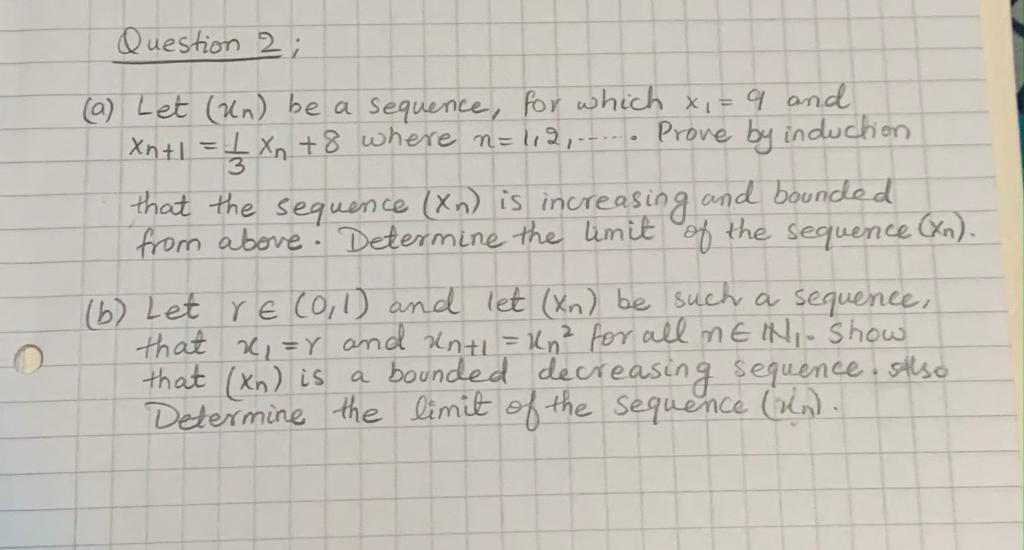 Question 2;
(a) Let (xn) be a sequence, for which x1 = 9 and
xn+1 = 1/3 xn + 8 where n = 1,2,..... Prove by induction
that the sequence (xn) is increasing and bounded
from above. Determine the limit of the sequence (xn).
(b) Let r ∈ (0,1) and let (xn) be such a sequence,
that x1 = r and xn+1 = xn² for all n ∈ N1. Show
that (xn) is a bounded decreasing sequence. Also
Determine the limit of the sequence (xn).